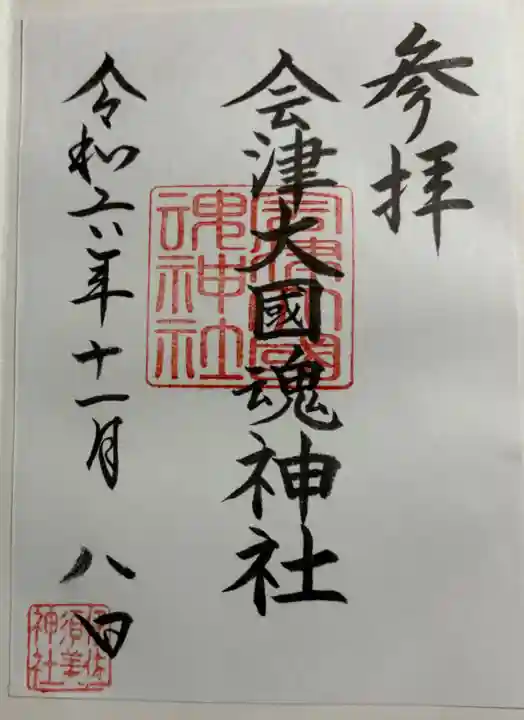 参拝
会津大國魂神社
会津大國魂神社
令和六年十一月八日
伊佐須美神社